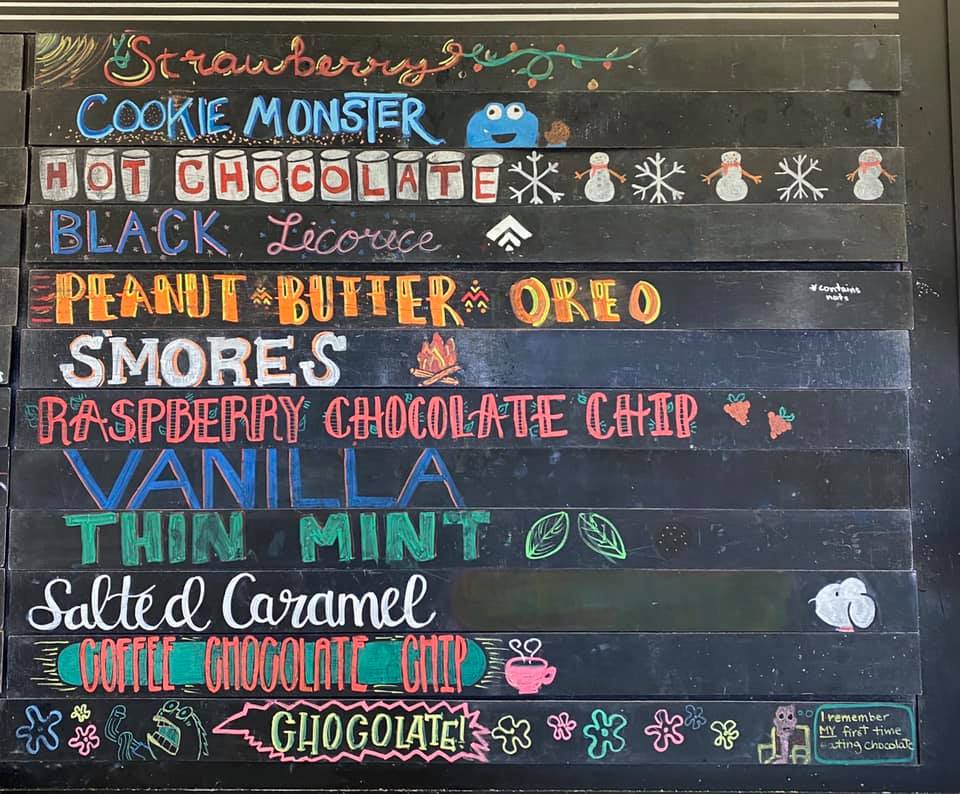 Strawberry
COOKIE MONSTER
HOT CHOCOLATE
BLACK Licorice
PEANUT BUTTER OREO
*contains
nuts
S'MORES
RASPBERRY CHOCOLATE CHIP
VANILLA
THIN MINT
Salted Caramel
COFFEE CHOCOLATE CHIP
CHOCOLATE!
I remember
MY first time
eating chocolate